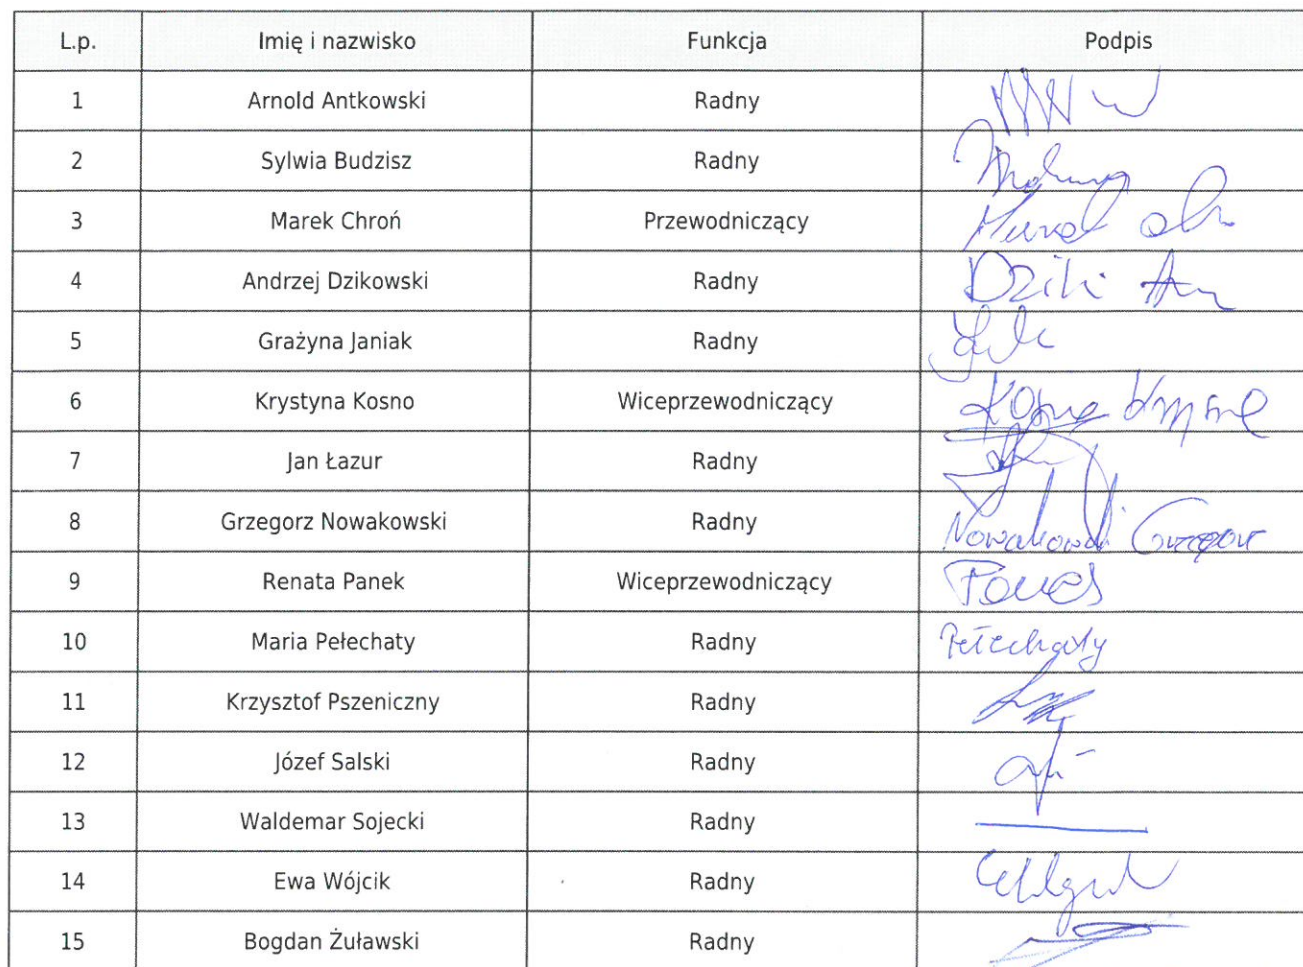 L.p. Imię i nazwisko Funkcja Podpis
1 Arnold Antkowski Radny
2 Sylwia Budzisz Radny
3 Marek Chroń Przewodniczący
4 Andrzej Dzikowski Radny
5 Grażyna Janiak Radny
6 Krystyna Kosno Wiceprzewodniczący
7 Jan Łazur Radny
8 Grzegorz Nowakowski Radny Nowakowski Grzegorz
9 Renata Panek Wiceprzewodniczący
10 Maria Pełechaty Radny Pełechaty
11 Krzysztof Pszeniczny Radny
12 Józef Salski Radny
13 Waldemar Sojecki Radny
14 Ewa Wójcik Radny
15 Bogdan Żuławski Radny